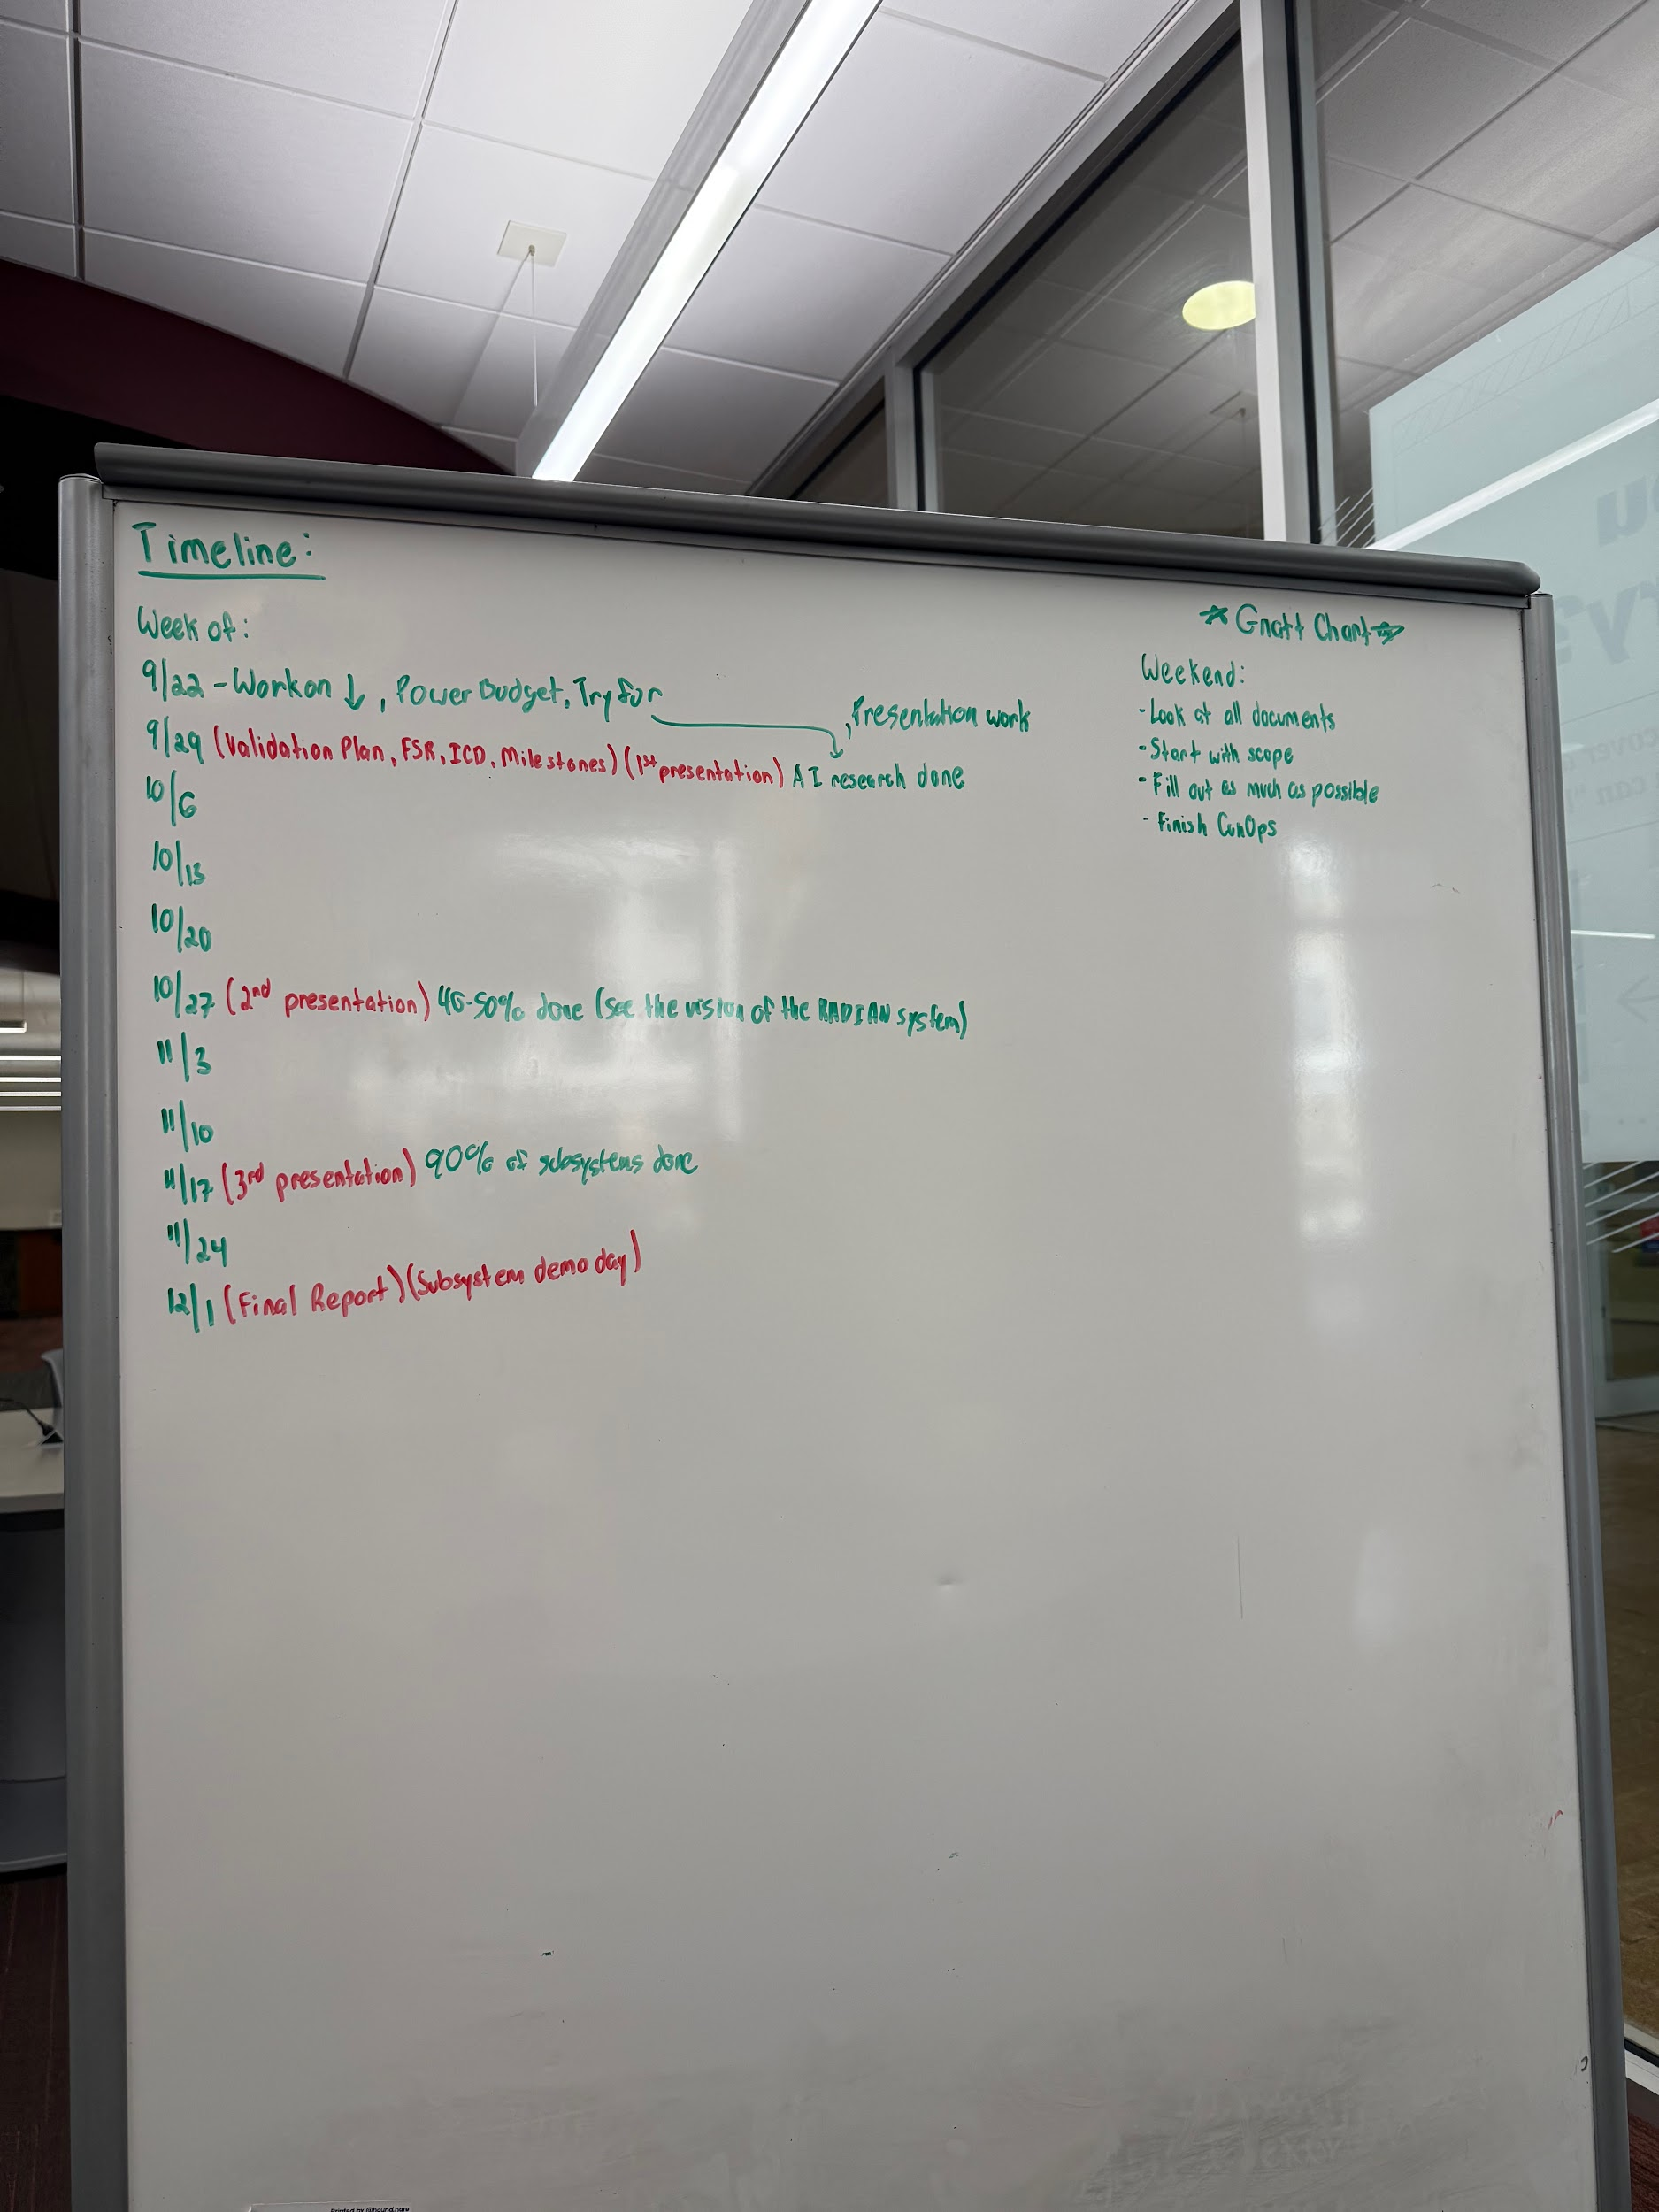 Timeline:
Week of:
9/22 - Work on ↓, Power Budget, Try for
, Presentation work
9/29 (Validation Plan, FSR, ICD, Milestones) (1st presentation) AI research done
10/6
10/13
10/20
10/27 (2nd presentation) 40-50% done (see the vision of the RADIAN system)
11/3
11/10
11/17 (3rd presentation) 90% of subsystems done
11/24
12/1 (Final Report) (Subsystem demo day)
* Gnatt Chart *
Weekend:
- Look at all documents
- Start with scope
- Fill out as much as possible
- Finish ConOps